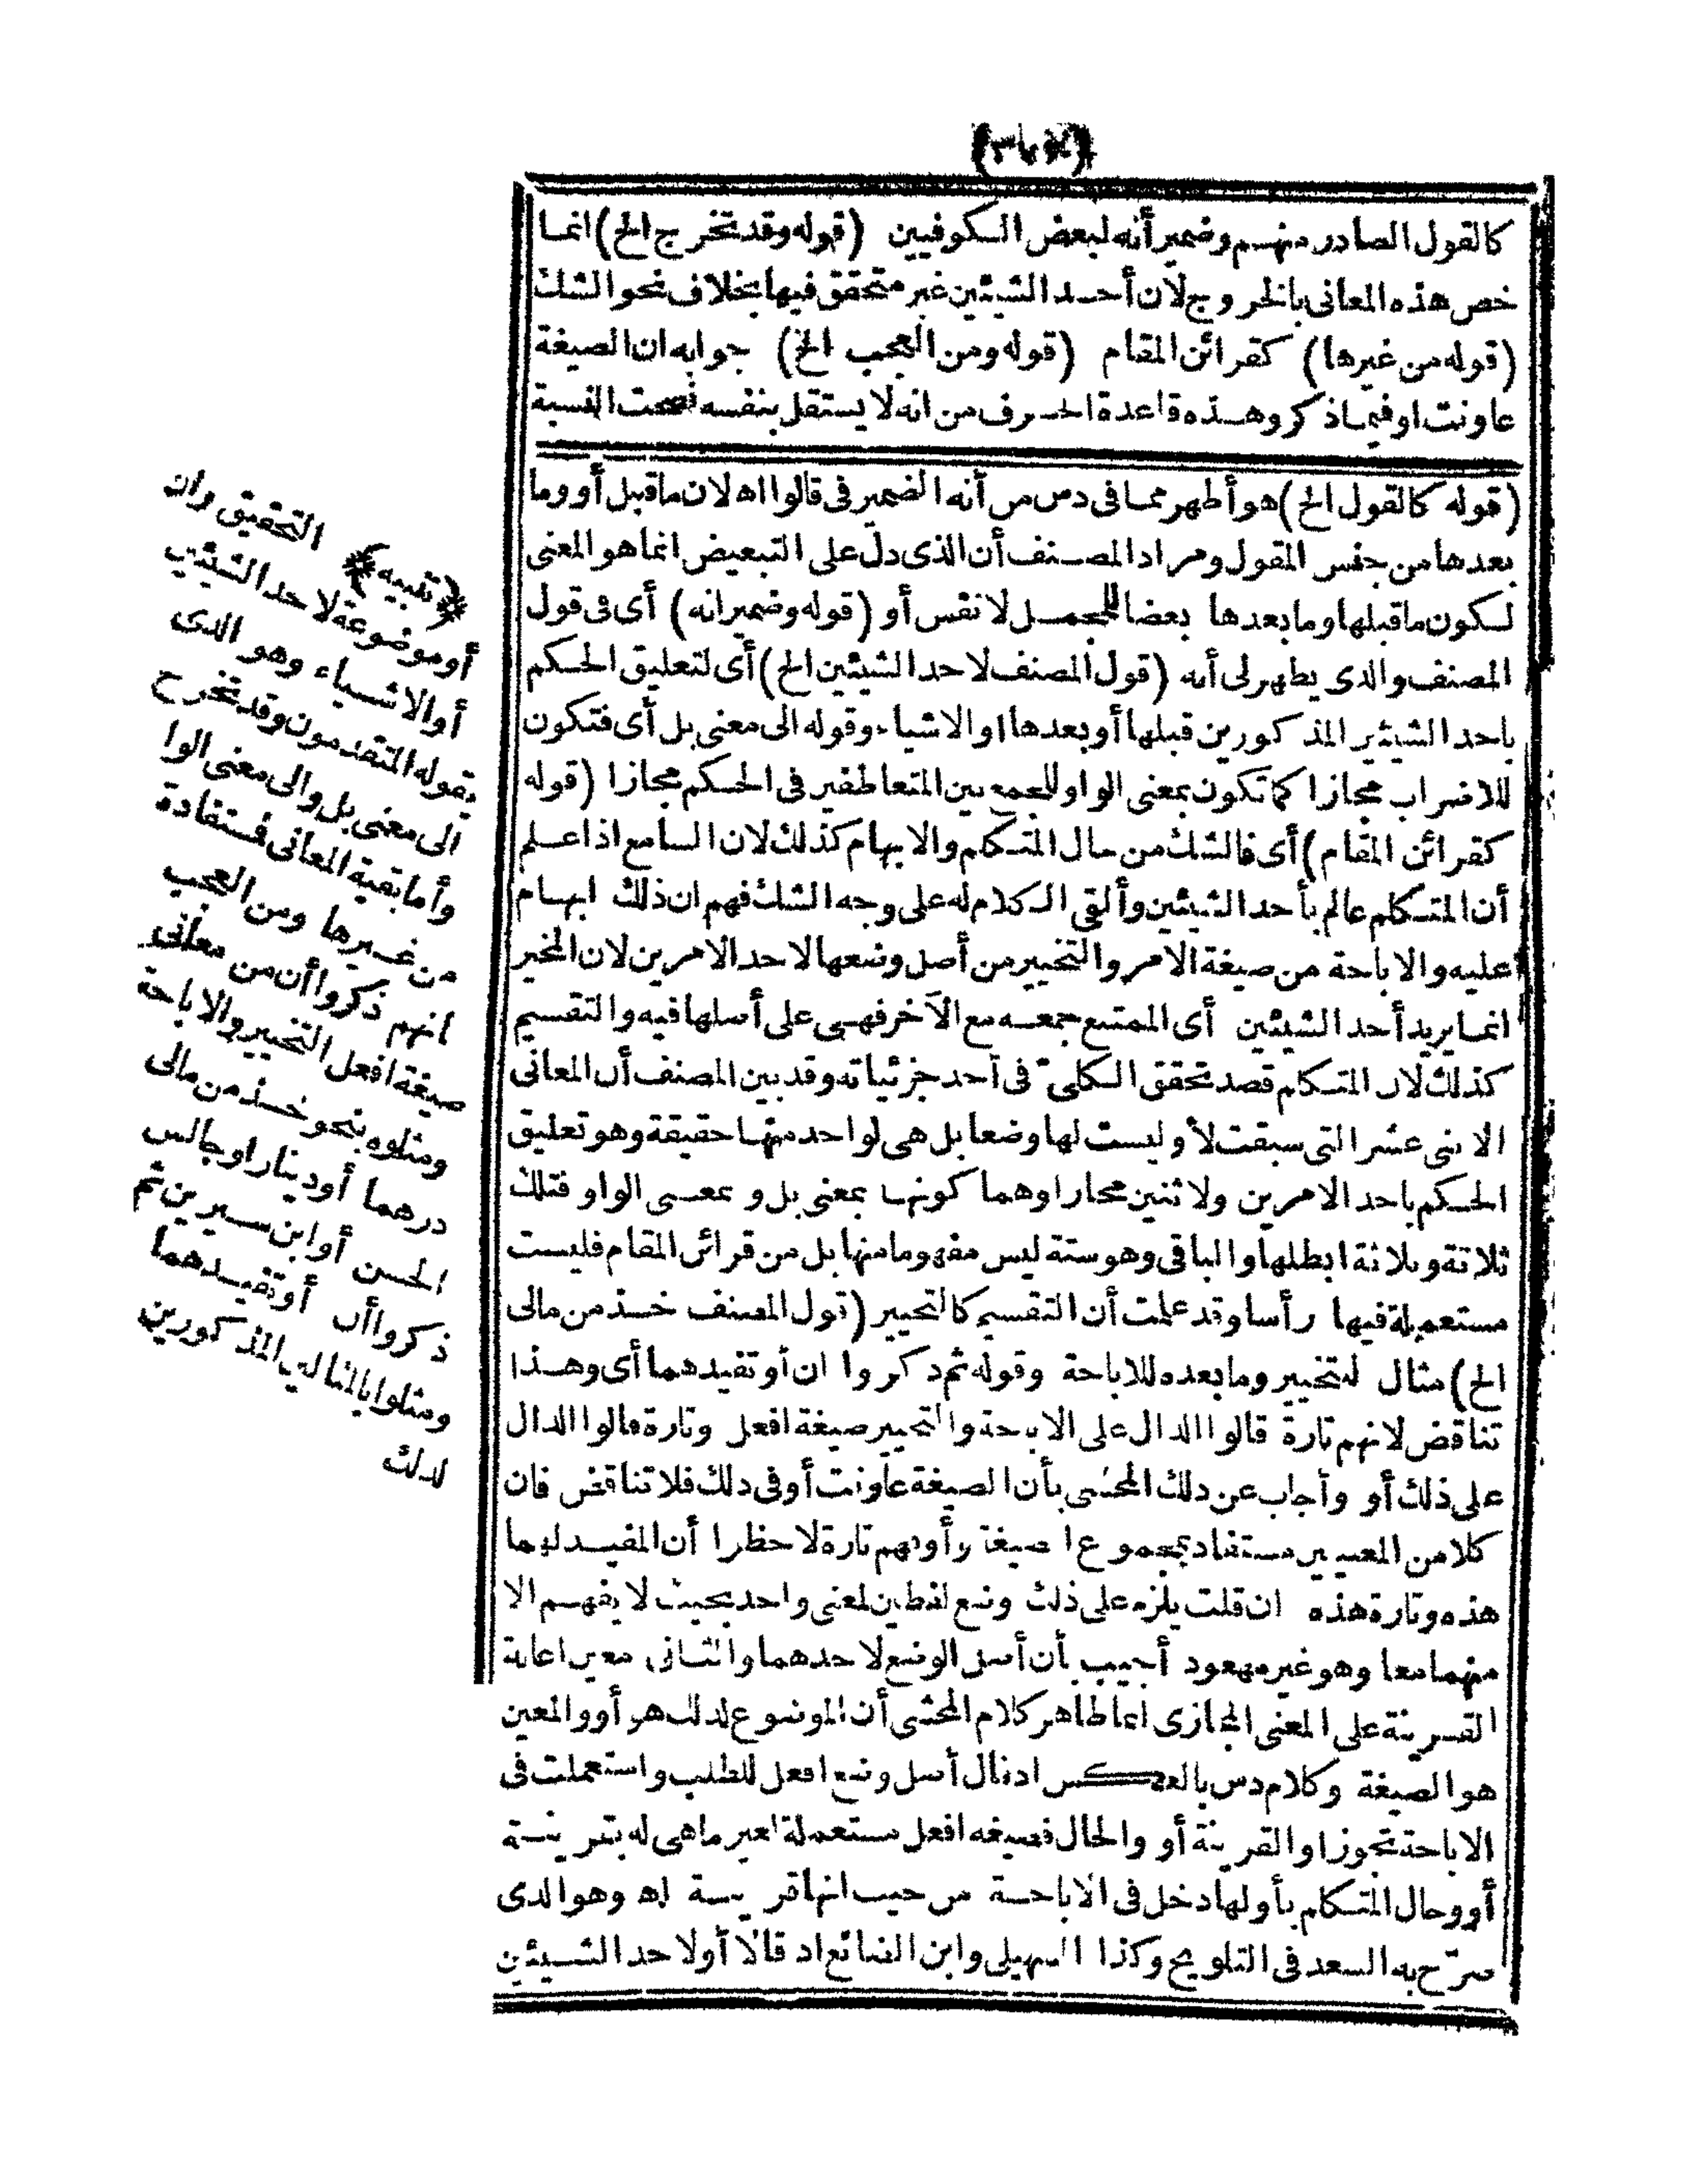 كالقول الصادر منهم وضمير أنه لبعض الكوفيين (قوله وقد تخرج الخ) انما
خص هذه المعانى بالخروج لان أحد الشيئين غير متحقق فيها بخلاف نحو الشك
(قوله من غيرها) كقرائن المقام (قوله ومن العجب الخ) جوابه ان الصيغة
عاونت او فيما ذكر وهذه قاعدة الحرف من انه لا يستقل بنفسه فصحت النسبة
(قوله كالقول الخ) هو أظهر مما فى دس من أنه الضمير فى قالوا اه لان ما قبل أو وما
بعدها من جنس المقول ومراد المصنف أن الذى دل على التبعيض انما هو المعنى
لكون ما قبلها وما بعدها بعضا للمجمل لا نفس أو (قوله وضمير انه) أى فى قول
المصنف والذى يظهر لى أنه (قول المصنف لاحد الشيئين الخ) أى لتعليق الحكم
باحد الشيئين المذكورين قبلها أو بعدها او الاشياء وقوله الى معنى بل أى فتكون
للاضراب مجازا كما تكون بمعنى الواو للجمع بين المتعاطفين فى الحكم مجازا (قوله
كقرائن المقام) أى فالشك من حال المتكلم والابهام كذلك لان السامع اذا علم
أن المتكلم عالم بأحد الشيئين وألقى الكلام له على وجه الشك فهم ان ذلك ابهام
عليه والاباحة من صيغة الامر والتخيير من أصل وضعها لاحد الامرين لان المخير
انما يريد أحد الشيئين أى الممتنع جمعه مع الآخر فهى على أصلها فيه والتقسيم
كذلك لان المتكلم قصد تحقق الكلىّ فى أحد جزئياته وقد بين المصنف أن المعانى
الاثنى عشر التى سبقت لأو ليست لها وضعا بل هى لواحد منها حقيقة وهو تعليق
الحكم باحد الامرين ولاثنين مجازا وهما كونها بمعنى بل وبمعنى الواو فتلك
ثلاثة وثلاثة ابطلها والباقى وهو ستة ليس مفهوما منها بل من قرائن المقام فليست
مستعملة فيها رأسا وقد علمت أن التقسيم كالتخيير (قول المصنف خذ من مالى
الخ) مثال للتخيير وما بعده للاباحة وقوله ثم ذكروا ان أو تفيدهما أى وهذا
تناقض لانهم تارة قالوا الدال على الاباحة والتخيير صيغة افعل وتارة قالوا الدال
على ذلك أو وأجاب عن ذلك المحشى بأن الصيغة عاونت أو فى ذلك فلا تناقض فان
كلا من المعنيين مستفاد بمجموع الصيغة وأو فهم تارة لاحظوا أن المفيد لهما
هذه وتارة هذه ان قلت يلزم على ذلك وضع لفظين لمعنى واحد بحيث لا يفهم الا
منهما معا وهو غير معهود أجيب بأن أصل الوضع لاحدهما والثانى معين اعانة
القرينة على المعنى المجازى انما ظاهر كلام المحشى أن الموضوع لذلك هو أو والمعين
هو الصيغة وكلام دس بالعكس اذ قال أصل وضع افعل للطلب واستعملت فى
الاباحة تجوزا والقرينة أو والحال فصيغة افعل مستعملة لغير ما هى له بقرينة
أو وحال المتكلم بأو لها دخل فى الاباحة من حيث انها قرينة اه وهو الذى
صرّح به السعد فى التلويح وكذا السهيلى وابن الضائع اذ قالا أو لاحد الشيئين
﴿تنبيه﴾ التحقيق ان
أو موضوعة لاحد الشيئين
أو الاشياء وهو الذى
يقوله المتقدمون وقد تخرج
الى معنى بل والى معنى الواو
وأما بقية المعانى فستفادة
من غيرها ومن العجب
انهم ذكروا أن من معانى
صيغة افعل التخيير والاباحة
ومثلوه بنحو خذ من مالى
درهما أو دينارا وجالس
الحسن أو ابن سيرين ثم
ذكروا أن أو تفيدهما
ومثلوا بالمثالين المذكورين
لذلك